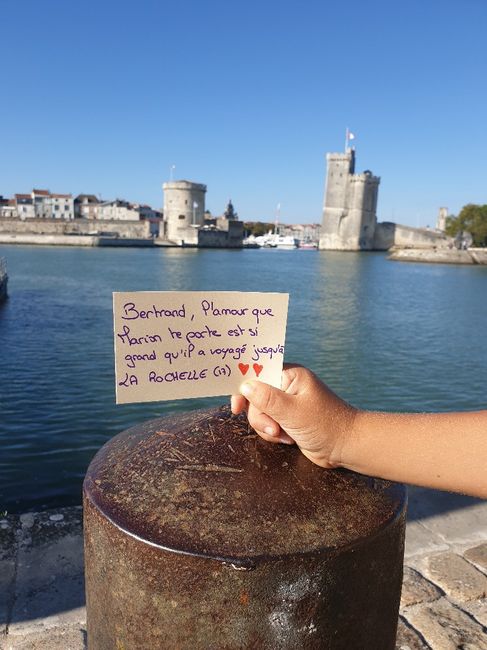 Bertrand, l'amour que
Marion te porte est si
grand qu'il a voyagé jusqu'à
LA ROCHELLE (17)